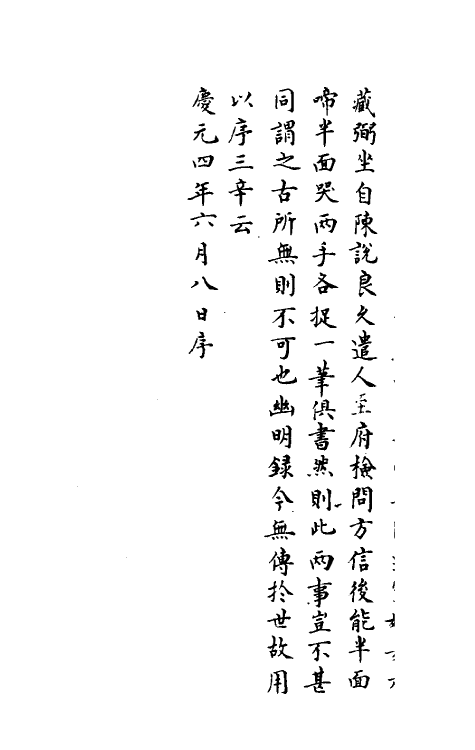 藏弼坐自陳說良久遣人至府檢問方信後能半面
啼半面哭兩手各捉一筆俱書然則此兩事豈不甚
同謂之古所無則不可也幽明録今無傳於世故用
以序三辛云
慶元四年六月八日序